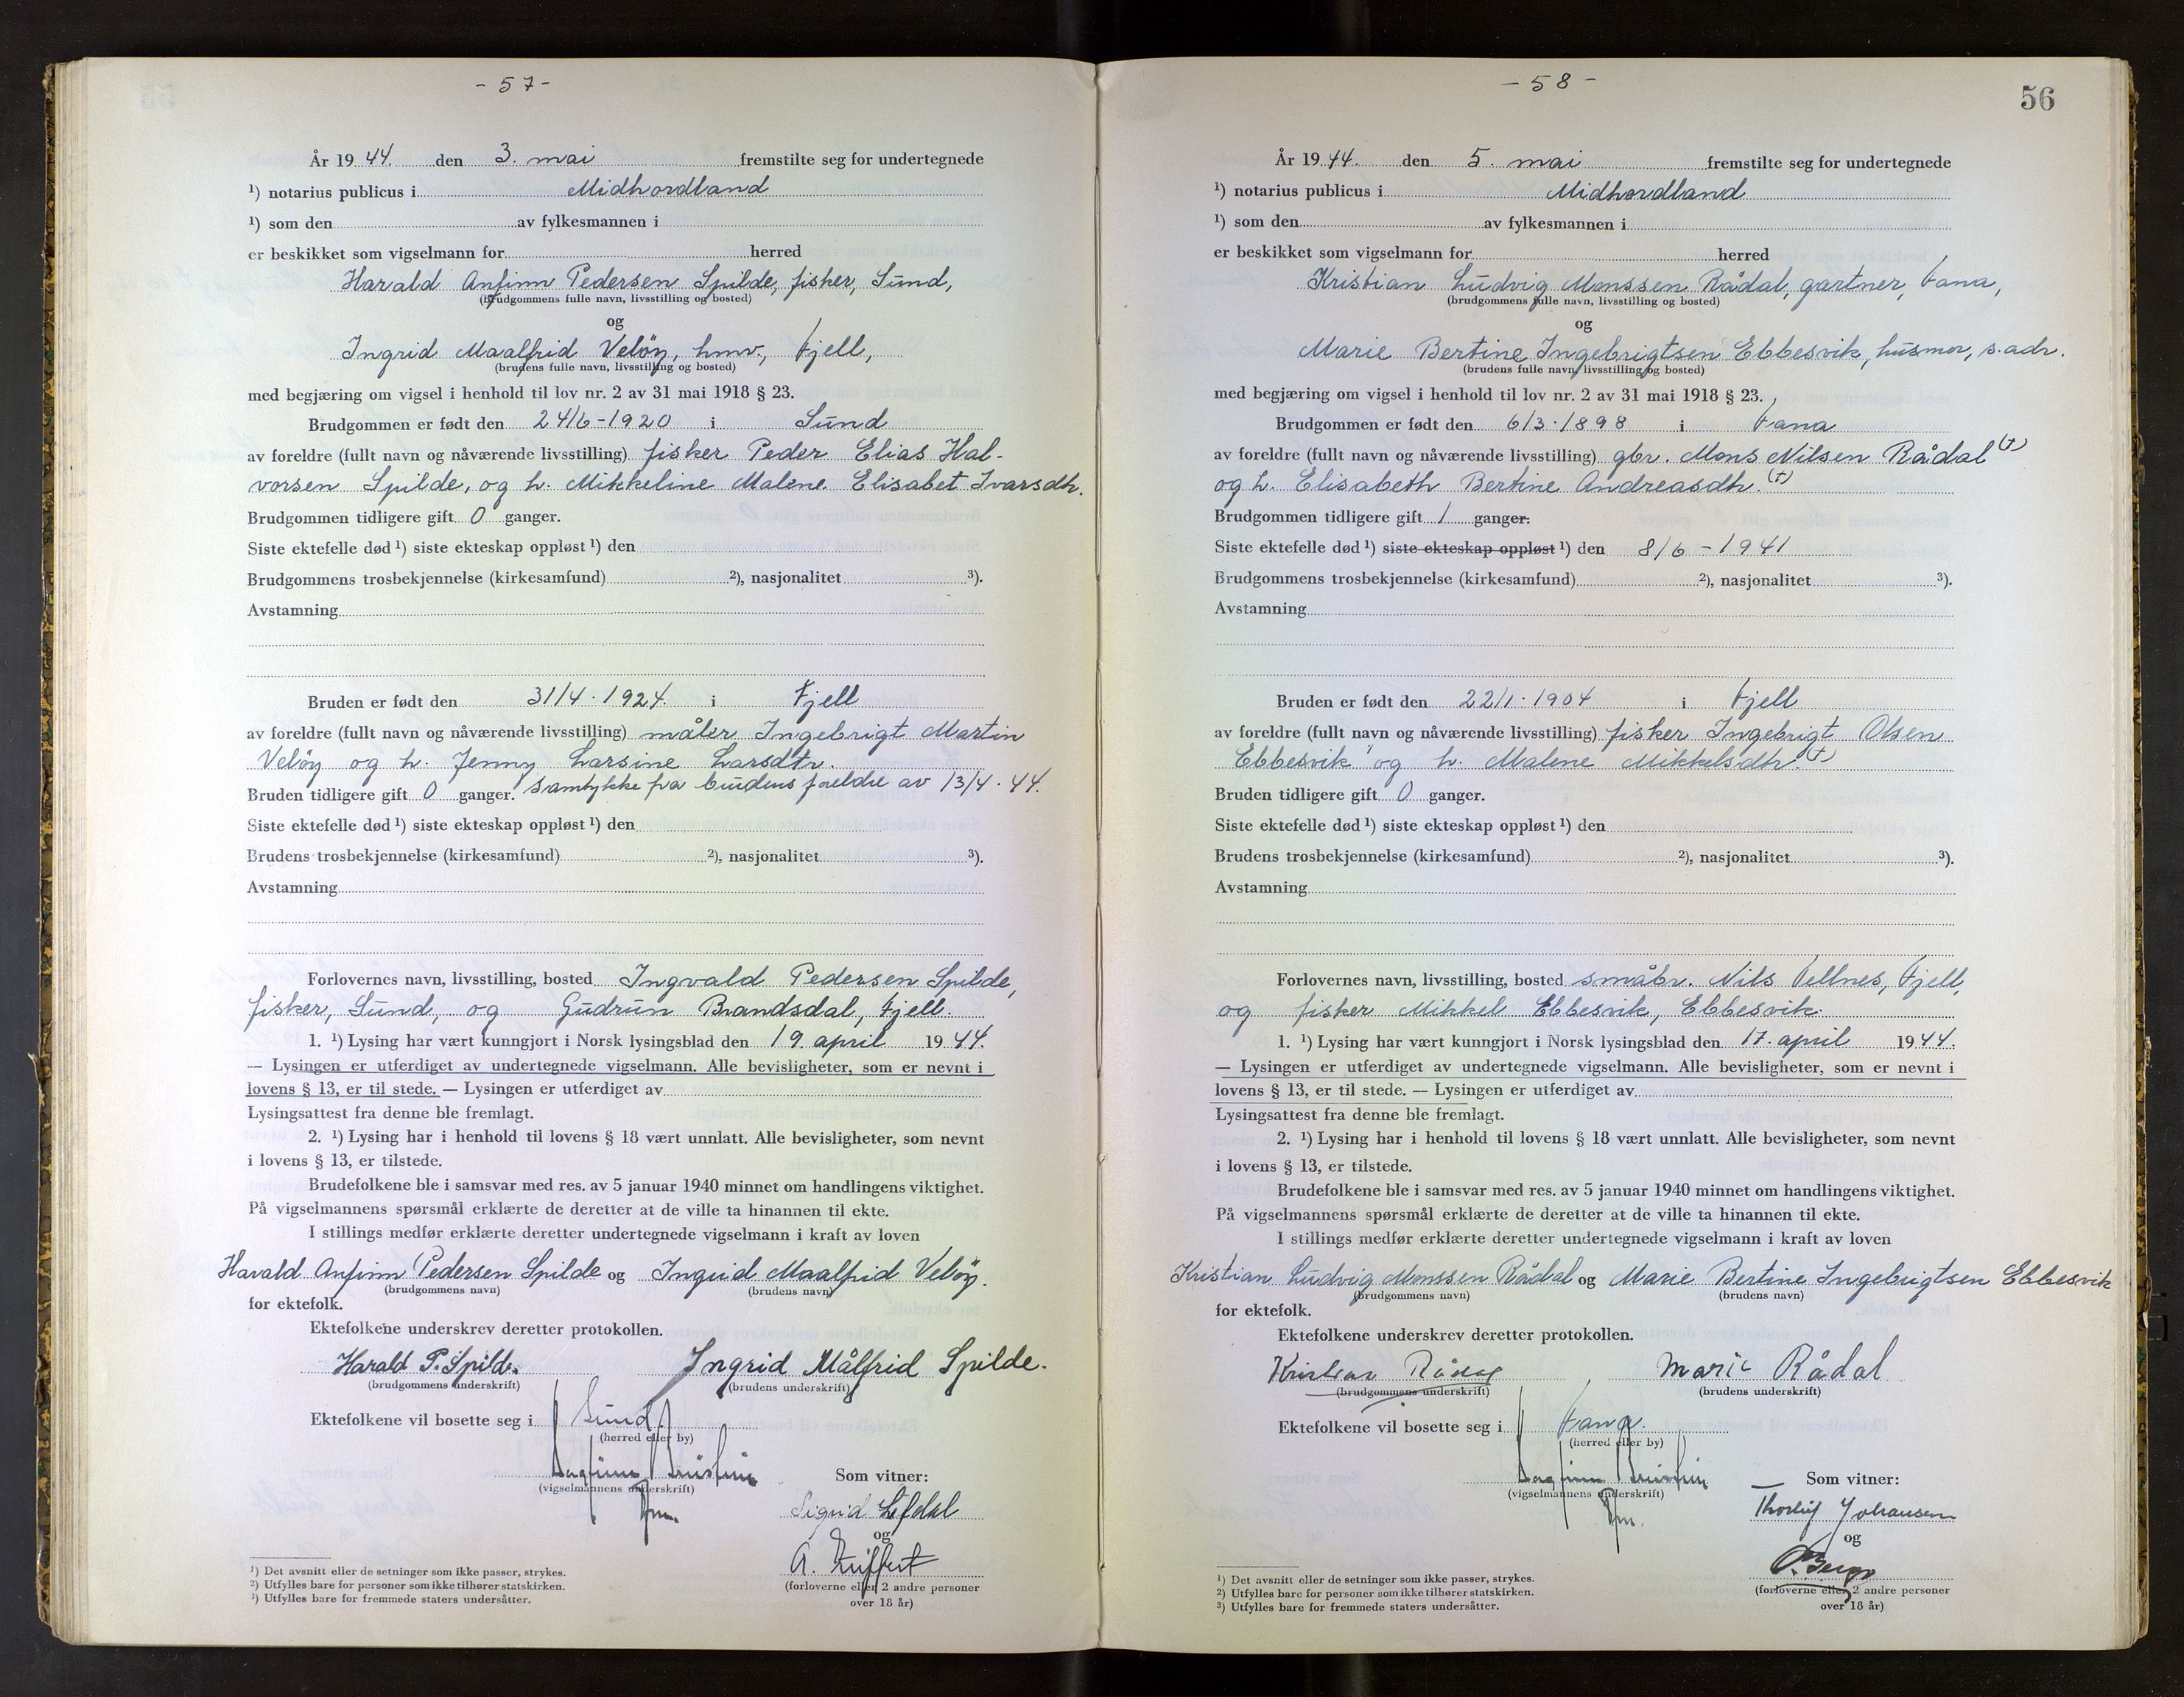 - 57 -
År 1944. den 3. mai fremstilte seg for undertegnede
¹) notarius publicus i Midhordland
¹) som den av fylkesmannen i
er beskikket som vigselmann for herred
Harald Anfinn Pedersen Spilde, fisker, Sund,
(brudgommens fulle navn, livsstilling og bosted)
og
Ingrid Maalfrid Veløy, hmv., Fjell,
(brudens fulle navn, livsstilling og bosted)
med begjæring om vigsel i henhold til lov nr. 2 av 31 mai 1918 § 23.
Brudgommen er født den 24/6-1920 i Sund
av foreldre (fullt navn og nåværende livsstilling) fisker Peder Elias Hal-
vorsen Spilde, og h. Mikkeline Malene Elisabet Ivarsdtr.
Brudgommen tidligere gift 0 ganger.
Siste ektefelle død ¹) siste ekteskap oppløst ¹) den
Brudgommens trosbekjennelse (kirkesamfund) ²), nasjonalitet ³).
Avstamning
Bruden er født den 31/4.1924. i Fjell
av foreldre (fullt navn og nåværende livsstilling) måler Ingebrigt Martin
Veløy og h. Jenny Larsine Larsdtr.
Bruden tidligere gift 0 ganger. Samtykke fra brudens foreldre av 13/4.44.
Siste ektefelle død ¹) siste ekteskap oppløst ¹) den
Brudens trosbekjennelse (kirkesamfund) ²), nasjonalitet ³).
Avstamning
Forlovernes navn, livsstilling, bosted Ingvald Pedersen Spilde,
fisker, Sund, og Gudrun Brandsdal, Fjell.
1. ¹) Lysing har vært kunngjort i Norsk lysingsblad den 19. april 1944.
— Lysingen er utferdiget av undertegnede vigselmann. Alle bevisligheter, som er nevnt i
lovens § 13, er til stede. — Lysingen er utferdiget av
Lysingsattest fra denne ble fremlagt.
2. ¹) Lysing har i henhold til lovens § 18 vært unnlatt. Alle bevisligheter, som nevnt
i lovens § 13, er tilstede.
Brudefolkene ble i samsvar med res. av 5 januar 1940 minnet om handlingens viktighet.
På vigselmannens spørsmål erklærte de deretter at de ville ta hinannen til ekte.
I stillings medfør erklærte deretter undertegnede vigselmann i kraft av loven
Harald Anfinn Pedersen Spilde og Ingrid Maalfrid Veløy.
(brudgommens navn) (brudens navn)
for ektefolk.
Ektefolkene underskrev deretter protokollen.
Harald P. Spilde. Ingrid Målfrid Spilde.
(brudgommens underskrift) (brudens underskrift)
Ektefolkene vil bosette seg i Sund.
(herred eller by)
(vigselmannens underskrift)
Som vitner:
Sigrid Lefdal
og
A.
(forloverne eller 2 andre personer
over 18 år)
¹) Det avsnitt eller de setninger som ikke passer, strykes.
²) Utfylles bare for personer som ikke tilhører statskirken.
³) Utfylles bare for fremmede staters undersåtter.
- 58 -
56
År 1944. den 5. mai fremstilte seg for undertegnede
¹) notarius publicus i Midhordland
¹) som den av fylkesmannen i
er beskikket som vigselmann for herred
Kristian Ludvig Monssen Rådal, gartner, Fana,
(brudgommens fulle navn, livsstilling og bosted)
og
Marie Bertine Ingebrigtsen Ebbesvik, husmor, s. adr.
(brudens fulle navn, livsstilling og bosted)
med begjæring om vigsel i henhold til lov nr. 2 av 31 mai 1918 § 23.
Brudgommen er født den 6/3.1898 i Fana
av foreldre (fullt navn og nåværende livsstilling) gbr. Mons Nilsen Rådal (†)
og h. Elisabeth Bertine Andreasdtr. (†)
Brudgommen tidligere gift 1 ganger.
Siste ektefelle død ¹) siste ekteskap oppløst ¹) den 8/6 - 1941
Brudgommens trosbekjennelse (kirkesamfund) ²), nasjonalitet ³).
Avstamning
Bruden er født den 22/1.1904 i Fjell
av foreldre (fullt navn og nåværende livsstilling) fisker Ingebrigt Olsen
Ebbesvik og h. Malene Mikkelsdtr. (†)
Bruden tidligere gift 0 ganger.
Siste ektefelle død ¹) siste ekteskap oppløst ¹) den
Brudens trosbekjennelse (kirkesamfund) ²), nasjonalitet ³).
Avstamning
Forlovernes navn, livsstilling, bosted småbr. Nils Vellnes, Fjell,
og fisker Mikkel Ebbesvik, Ebbesvik.
1. ¹) Lysing har vært kunngjort i Norsk lysingsblad den 17. april 1944.
— Lysingen er utferdiget av undertegnede vigselmann. Alle bevisligheter, som er nevnt i
lovens § 13, er til stede. — Lysingen er utferdiget av
Lysingsattest fra denne ble fremlagt.
2. ¹) Lysing har i henhold til lovens § 18 vært unnlatt. Alle bevisligheter, som nevnt
i lovens § 13, er tilstede.
Brudefolkene ble i samsvar med res. av 5 januar 1940 minnet om handlingens viktighet.
På vigselmannens spørsmål erklærte de deretter at de ville ta hinannen til ekte.
I stillings medfør erklærte deretter undertegnede vigselmann i kraft av loven
Kristian Ludvig Monssen Rådal og Marie Bertine Ingebrigtsen Ebbesvik
(brudgommens navn) (brudens navn)
for ektefolk.
Ektefolkene underskrev deretter protokollen.
Kristian Rådal Marie Rådal
(brudgommens underskrift) (brudens underskrift)
Ektefolkene vil bosette seg i Fana.
(herred eller by)
(vigselmannens underskrift)
Som vitner:
Thorleif Johansen
og
(forloverne eller 2 andre personer
over 18 år)
¹) Det avsnitt eller de setninger som ikke passer, strykes.
²) Utfylles bare for personer som ikke tilhører statskirken.
³) Utfylles bare for fremmede staters undersåtter.